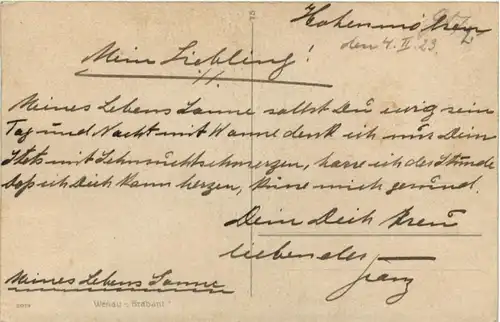 Hohenmölsen
den 4. II. 23.
Mein Liebling!
Meines Lebens Sonne sollst Du ewig sein
Tag und Nacht mit Wonne denk ich nur Dein
Stets mit Sehnsuchtschmerzen, harre ich der Stunde
daß ich Dich kann herzen, küsse mich gesund.
Dein Dich treu
liebender
Franz
Meines Lebens Sonne
Wenau - Brabant